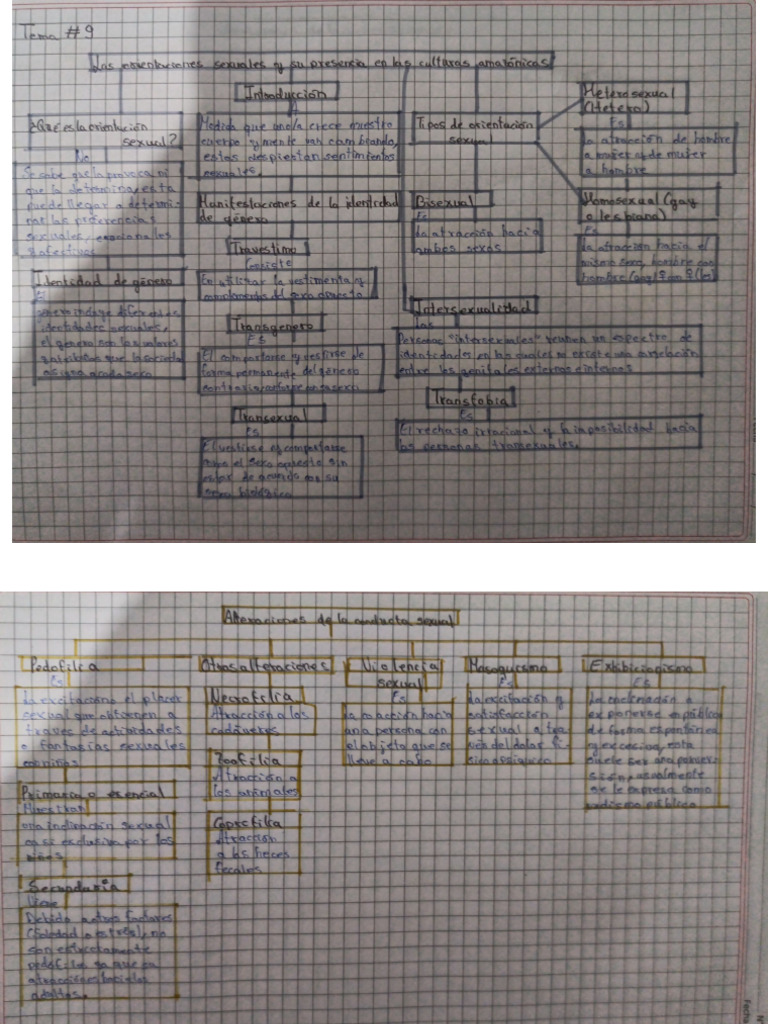 Tema #9
Las orientaciones sexuales y su presencia en las culturas amazónicas
Introducción
Medida que une/a crece nuestro
cuerpo y mente van cambiando,
estas despiertan sentimientos
sexuales.
¿Qué es la orientación
sexual?
No
Se sabe que la provoca ni
que la determina, esta
puede llegar a determi-
nar las preferencias
sexuales,
y afectivas
Identidad de género
Es
genero incluye diferentes
identidades sexuales,
el género son los valores
que la sociedad
asigna a cada sexo
Manifestaciones de la identidad
de género
Travestimo
Consiste
En utilizar la vestimenta y
del sexo opuesto
Transgenero
Es
El comportarse y vestirse de
forma permanente del género
Transexual
Es
El vestirse y comportarse
como el sexo opuesto sin
estar de acuerdo con su
sexo biológico
Tipos de orientación
sexual
Heterosexual
(Hetero)
Es
La atracción de hombre
a mujer y de mujer
a hombre
Homosexual (gay
o lesbiana)
Es
La atracción hacia el
mismo sexo, hombre con
hombre (gay) ♀ con ♀ (les)
Bisexual
Es
La atracción hacia
ambos sexos
Intersexualidad
Las
Personas "intersexuales" reunen un espectro de
identidades en las cuales no existe una correlación
entre los genitales externos e internos
Transfobia
Es
El rechazo irracional y la imposibilidad hacia
las personas transexuales.
Alteraciones de la conducta sexual
Pedofilia
Es
La excitación o el placer
sexual que obtienen a
traves de actividades
o fantasías sexuales
con niños
Primaria o esencial
Muestran
una inclinación sexual
casi exclusiva por los
niños
Secundaria
Viene
Debido a otros factores
(Soledad o estrés), no
son estrictamente
pedofilos ya que
atracciones hacia los
adultos.
Otras alteraciones
Necrofilia
Atracción a los
cadáveres
Zoofilia
Atracción a
los animales
Coprofilia
Atracción
a las heces
fecales
Violencia
sexual
Es
La coacción hacia
una persona con
el objeto que se
lleve a cabo
Masoquismo
Es
La excitación y
satisfacción
sexual a tra
vés del dolor fí-
sico o psíquico
Exibicionismo
Es
La inclinación a
exponerse en público
de forma espontánea
y excesiva, esta
suele ser una perver-
sión, usualmente
se le expresa como
nudismo público